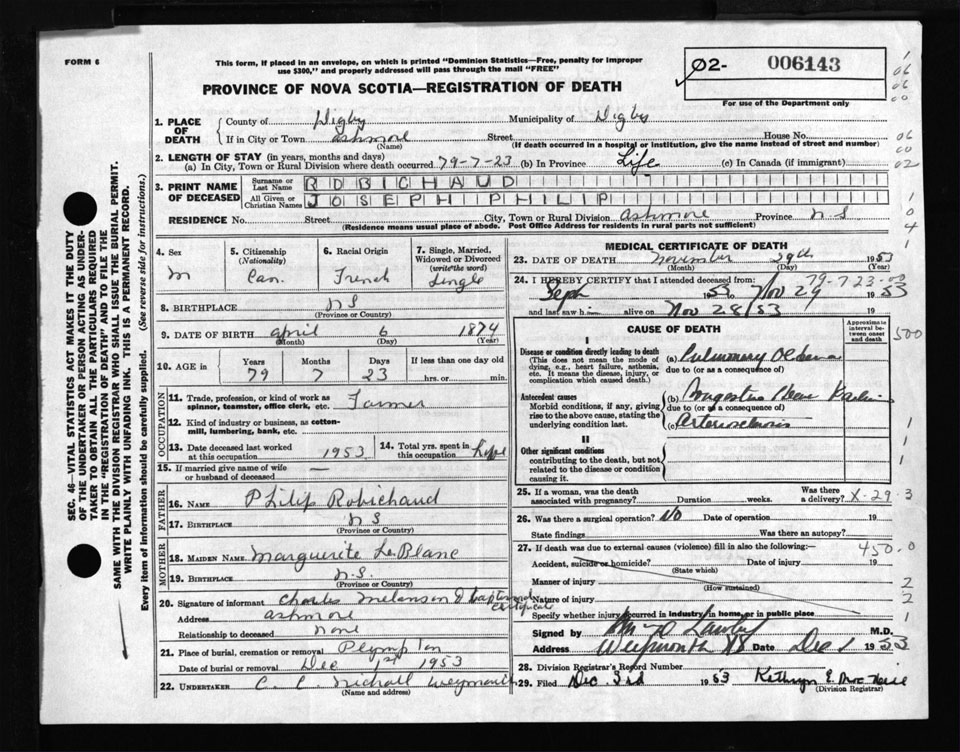 FORM 6
This form, if placed in an envelope, on which is printed "Dominion Statistics—Free, penalty for improper
use $300," and properly addressed will pass through the mail "FREE"
PROVINCE OF NOVA SCOTIA—REGISTRATION OF DEATH
02- 006143
For use of the Department only
SEC. 46—VITAL STATISTICS ACT MAKES IT THE DUTY
OF THE UNDERTAKER OR PERSON ACTING AS UNDER-
TAKER TO OBTAIN ALL THE PARTICULARS REQUIRED
IN THE "REGISTRATION OF DEATH" AND TO FILE THE
SAME WITH THE DIVISION REGISTRAR WHO SHALL ISSUE THE BURIAL PERMIT.
WRITE PLAINLY WITH UNFADING INK. THIS IS A PERMANENT RECORD.
Every item of information should be carefully supplied. (See reverse side for instructions.)
1. PLACE OF DEATH
County of Digby Municipality of Digby
If in City or Town Ashmore Street House No.
(Name) (If death occurred in a hospital or institution, give the name instead of street and number)
2. LENGTH OF STAY (in years, months and days)
(a) In City, Town or Rural Division where death occurred 79-7-23 (b) In Province Life (c) In Canada (if immigrant)
3. PRINT NAME OF DECEASED
Surname or Last Name ROBICHAUD
All Given or Christian Names JOSEPH PHILIP
RESIDENCE No. Street City, Town or Rural Division Ashmore Province N S
(Residence means usual place of abode. Post Office Address for residents in rural parts not sufficient)
4. Sex M
5. Citizenship (Nationality) Can.
6. Racial Origin French
7. Single, Married, Widowed or Divorced (write the word) Single
8. BIRTHPLACE N S
(Province or Country)
9. DATE OF BIRTH April 6 1874
(Month) (Day) (Year)
10. AGE in Years 79 Months 7 Days 23 If less than one day old hrs. or min.
OCCUPATION
11. Trade, profession, or kind of work as spinner, teamster, office clerk, etc. Farmer
12. Kind of industry or business, as cotton-mill, lumbering, bank, etc.
13. Date deceased last worked at this occupation 1953
14. Total yrs. spent in this occupation Life
15. If married give name of wife or husband of deceased —
FATHER
16. NAME Philip Robichaud
17. BIRTHPLACE N S
(Province or Country)
MOTHER
18. MAIDEN NAME Marguerite LeBlanc
19. BIRTHPLACE N.S.
(Province or Country)
20. Signature of informant Charles Melanson & Baptismal Certificate
Address Ashmore
Relationship to deceased None
21. Place of burial, cremation or removal Plympton
Date of burial or removal Dec 1st 1953
22. UNDERTAKER C. C Nichall Weymouth
(Name and address)
MEDICAL CERTIFICATE OF DEATH
23. DATE OF DEATH November 29th 1953
(Month) (Day) (Year)
24. I HEREBY CERTIFY that I attended deceased from: 79-723-00
Sept 1953 to Nov 29 1953
and last saw h alive on Nov 28/53 19
CAUSE OF DEATH
Approximate interval between onset and death
I
Disease or condition directly leading to death (a) Pulmonary Oedema
(This does not mean the mode of dying, e.g., heart failure, asthenia, etc. It means the disease, injury, or complication which caused death.)
due to (or as a consequence of)
Antecedent causes (b) Congestive Heart Failure
Morbid conditions, if any, giving rise to the above cause, stating the underlying condition last.
due to (or as a consequence of)
(c) Arteriosclerosis
II
Other significant conditions
contributing to the death, but not related to the disease or condition causing it.
25. If a woman, was the death associated with pregnancy? Duration weeks. Was there a delivery? X-29.3
26. Was there a surgical operation? No Date of operation 19
State findings Was there an autopsy?
27. If death was due to external causes (violence) fill in also the following:— 450.0
Accident, suicide or homicide? Date of injury 19
(State which)
Manner of injury
(How sustained)
Nature of injury
Specify whether injury occurred in industry, in home, or in public place
Signed by M.D.
Address Weymouth NS Date Dec 1 1953
28. Division Registrar's Record Number
29. Filed Dec. 3rd 1953 Kathryn E.
(Division Registrar)